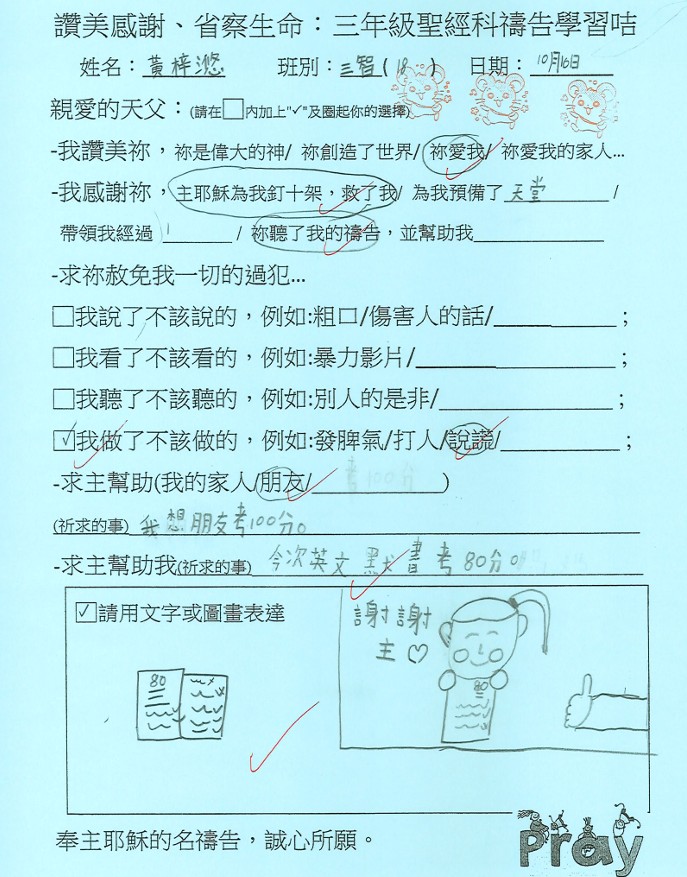 讚美感謝、省察生命：三年級聖經科禱告學習咭
姓名：黃梓悠 班別：三智(18) 日期：10月16日
親愛的天父：(請在□內加上"✓"及圈起你的選擇)
-我讚美祢，祢是偉大的神/ 祢創造了世界/ 祢愛我/ 祢愛我的家人...
-我感謝祢，主耶穌為我釘十架，救了我/ 為我預備了 天堂 /
帶領我經過 / 祢聽了我的禱告，並幫助我
-求祢赦免我一切的過犯...
□我說了不該說的，例如:粗口/傷害人的話/ ；
□我看了不該看的，例如:暴力影片/ ；
□我聽了不該聽的，例如:別人的是非/ ；
☑我做了不該做的，例如:發脾氣/打人/說謊/ ；
-求主幫助(我的家人/朋友/ 考100分 )
(祈求的事) 我想朋友考100分。
-求主幫助我(祈求的事) 今次英文默書考80分。
☑請用文字或圖畫表達
謝謝
主♡
80
80
奉主耶穌的名禱告，誠心所願。
Pray